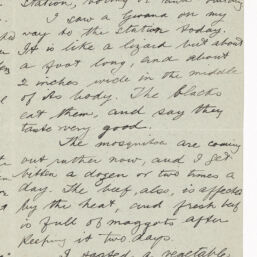 Station, 
I saw a Iguana on my
way to the Station today.
It is like a lizard but about
a foot long, and about
2 inches wide in the middle
of its body. The blacks
eat them, and say they
taste very good.
The mosquitos are coming
out rather now, and I get
bitten a dozen or two times a
day. The beef, also, is affected
by the heat, and fresh beef
is full of maggots after
keeping it two days.
I a vegetable